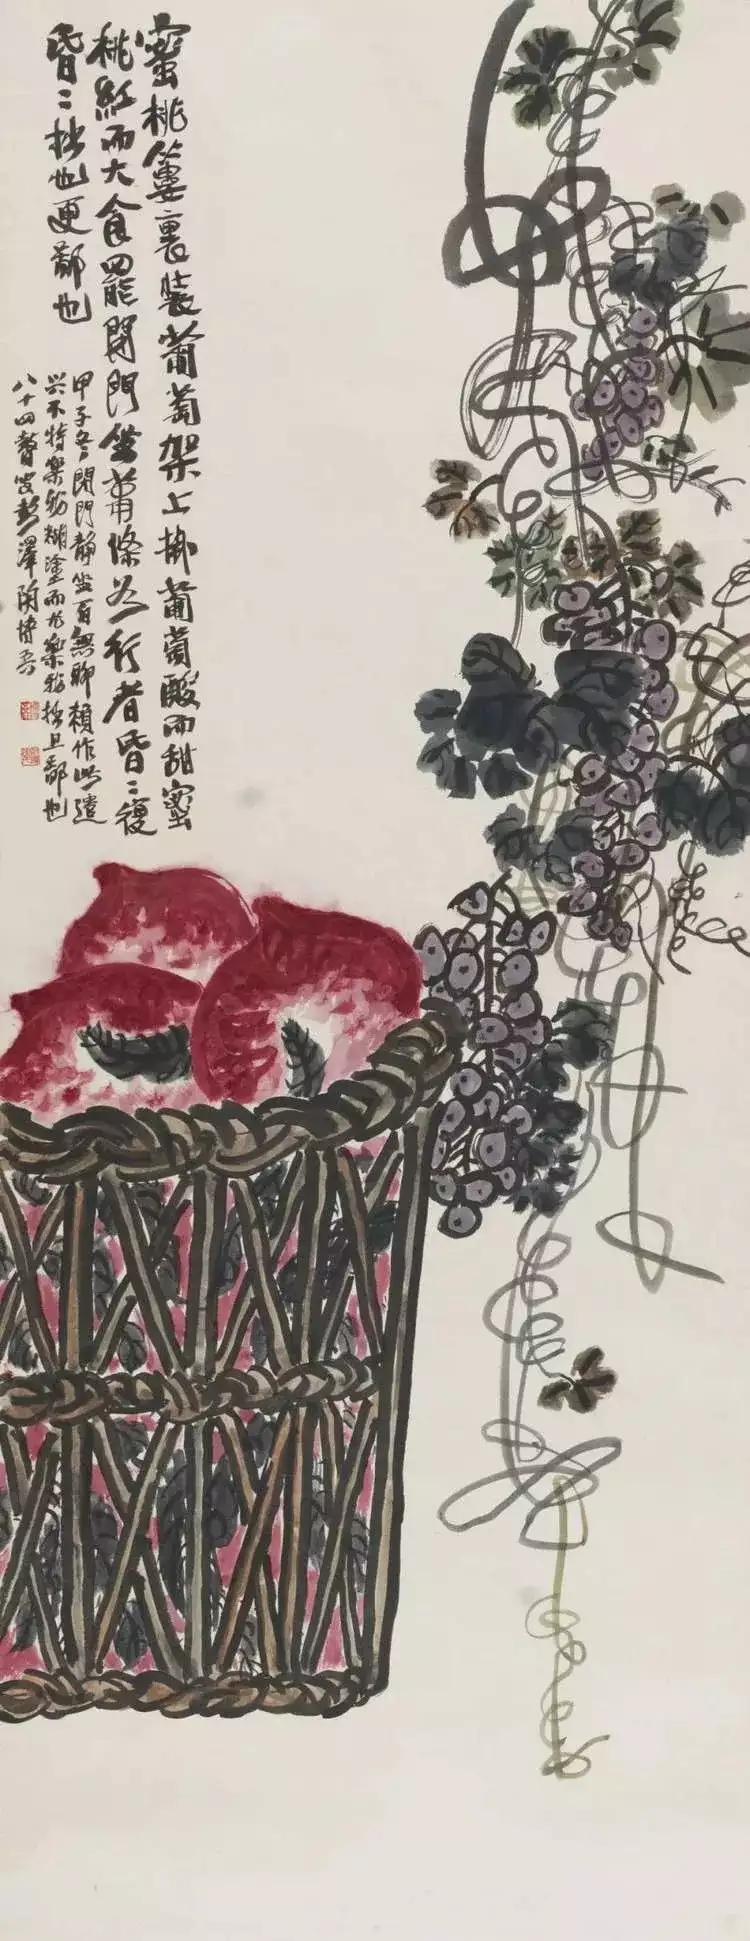 蜜桃簍裏裝葡萄架上掛葡萄酸而甜蜜
桃紅而大食罷閉門坐蕭條行者昏〻復
昏〻拙也更鄙也
甲子冬閉門靜坐百無聊賴作此遣
兴不特樂於糊塗而尤樂於拙且鄙也
八十四瞽叟彭澤陶博吾